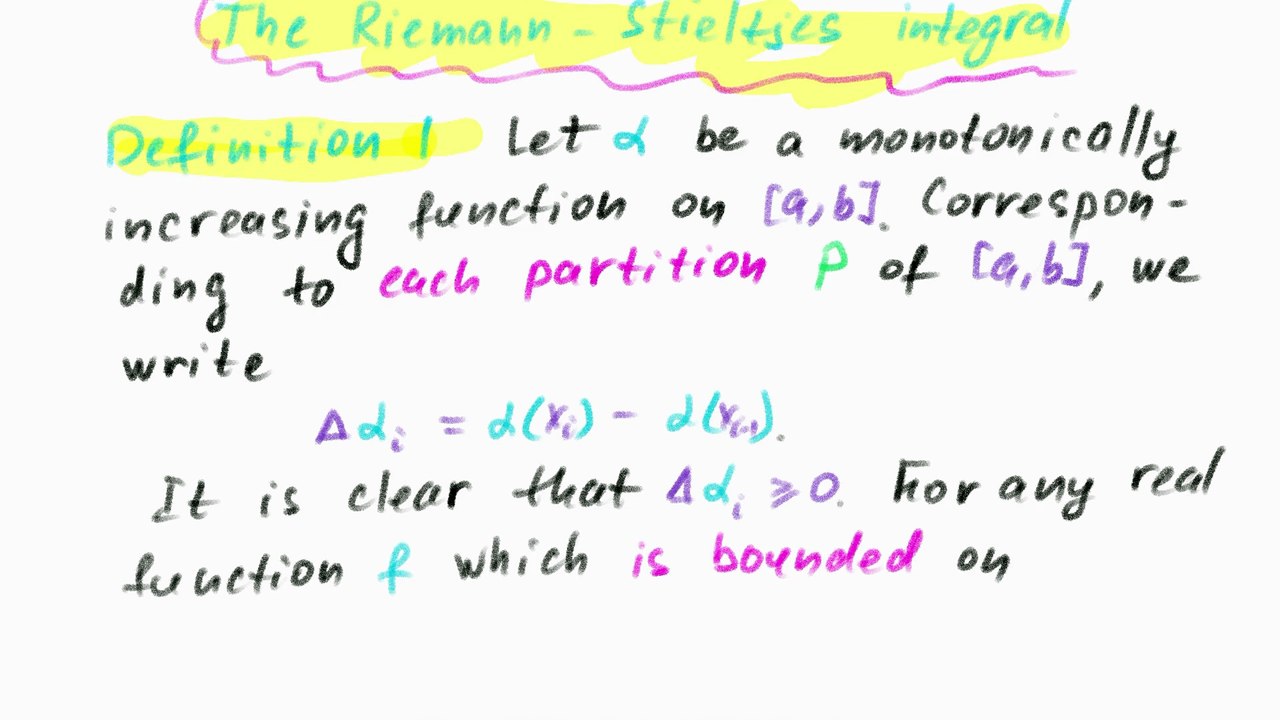 The Riemann - Stieltjes integral
Definition 1 Let α be a monotonically
increasing function on [a,b]. Correspon-
ding to each partition P of [a,b], we
write
Δαᵢ = α(xᵢ) - α(xᵢ₋₁).
It is clear that Δαᵢ ≥ 0. For any real
function f which is bounded on